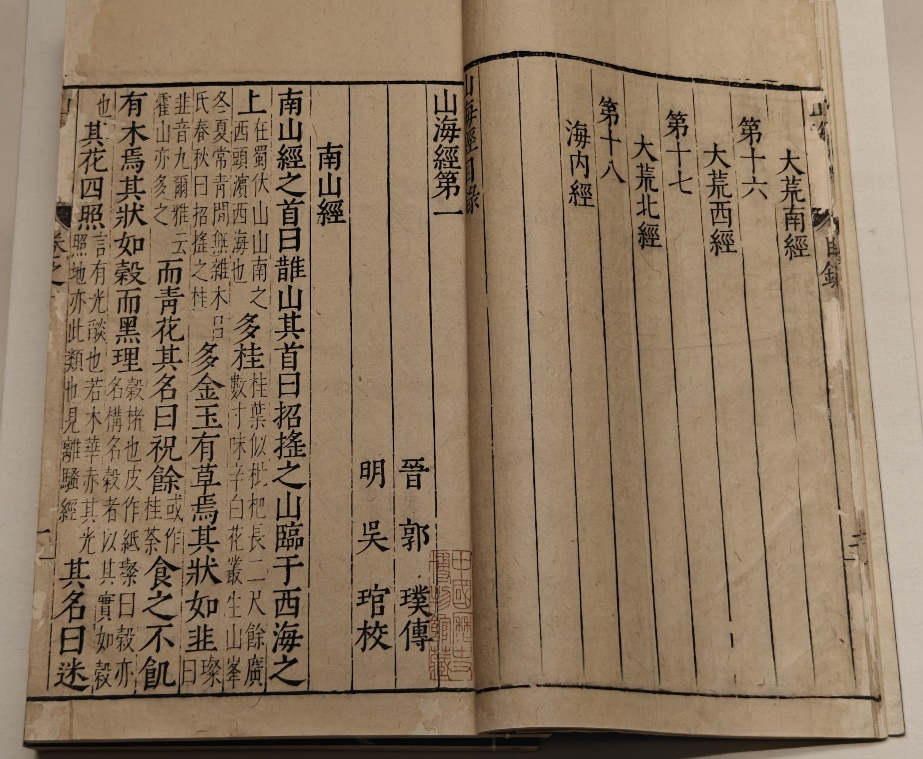 目錄
大荒南經
第十六
大荒西經
第十七
大荒北經
第十八
海內經
山海經目錄
山海經第一
晉 郭 璞傳
明 吳 琯校
南山經
南山經之首曰䧿山其首曰招搖之山臨于西海之
上在蜀伏山山南之西頭濱西海也多桂桂葉似枇杷長二尺餘廣數寸味辛白花叢生山峯
冬夏常青間無雜木呂氏春秋曰招搖之桂多金玉有草焉其狀如韭璨曰
韭音九爾雅云霍山亦多之而青花其名曰祝餘或作桂荼食之不飢
有木焉其狀如榖而黑理榖楮也皮作紙璨曰榖亦名構名榖者以其實如榖
也其花四照言有光燄也若木華赤其光照地亦此類也見離騷經其名曰迷
卷之一
中國歷史博物館藏